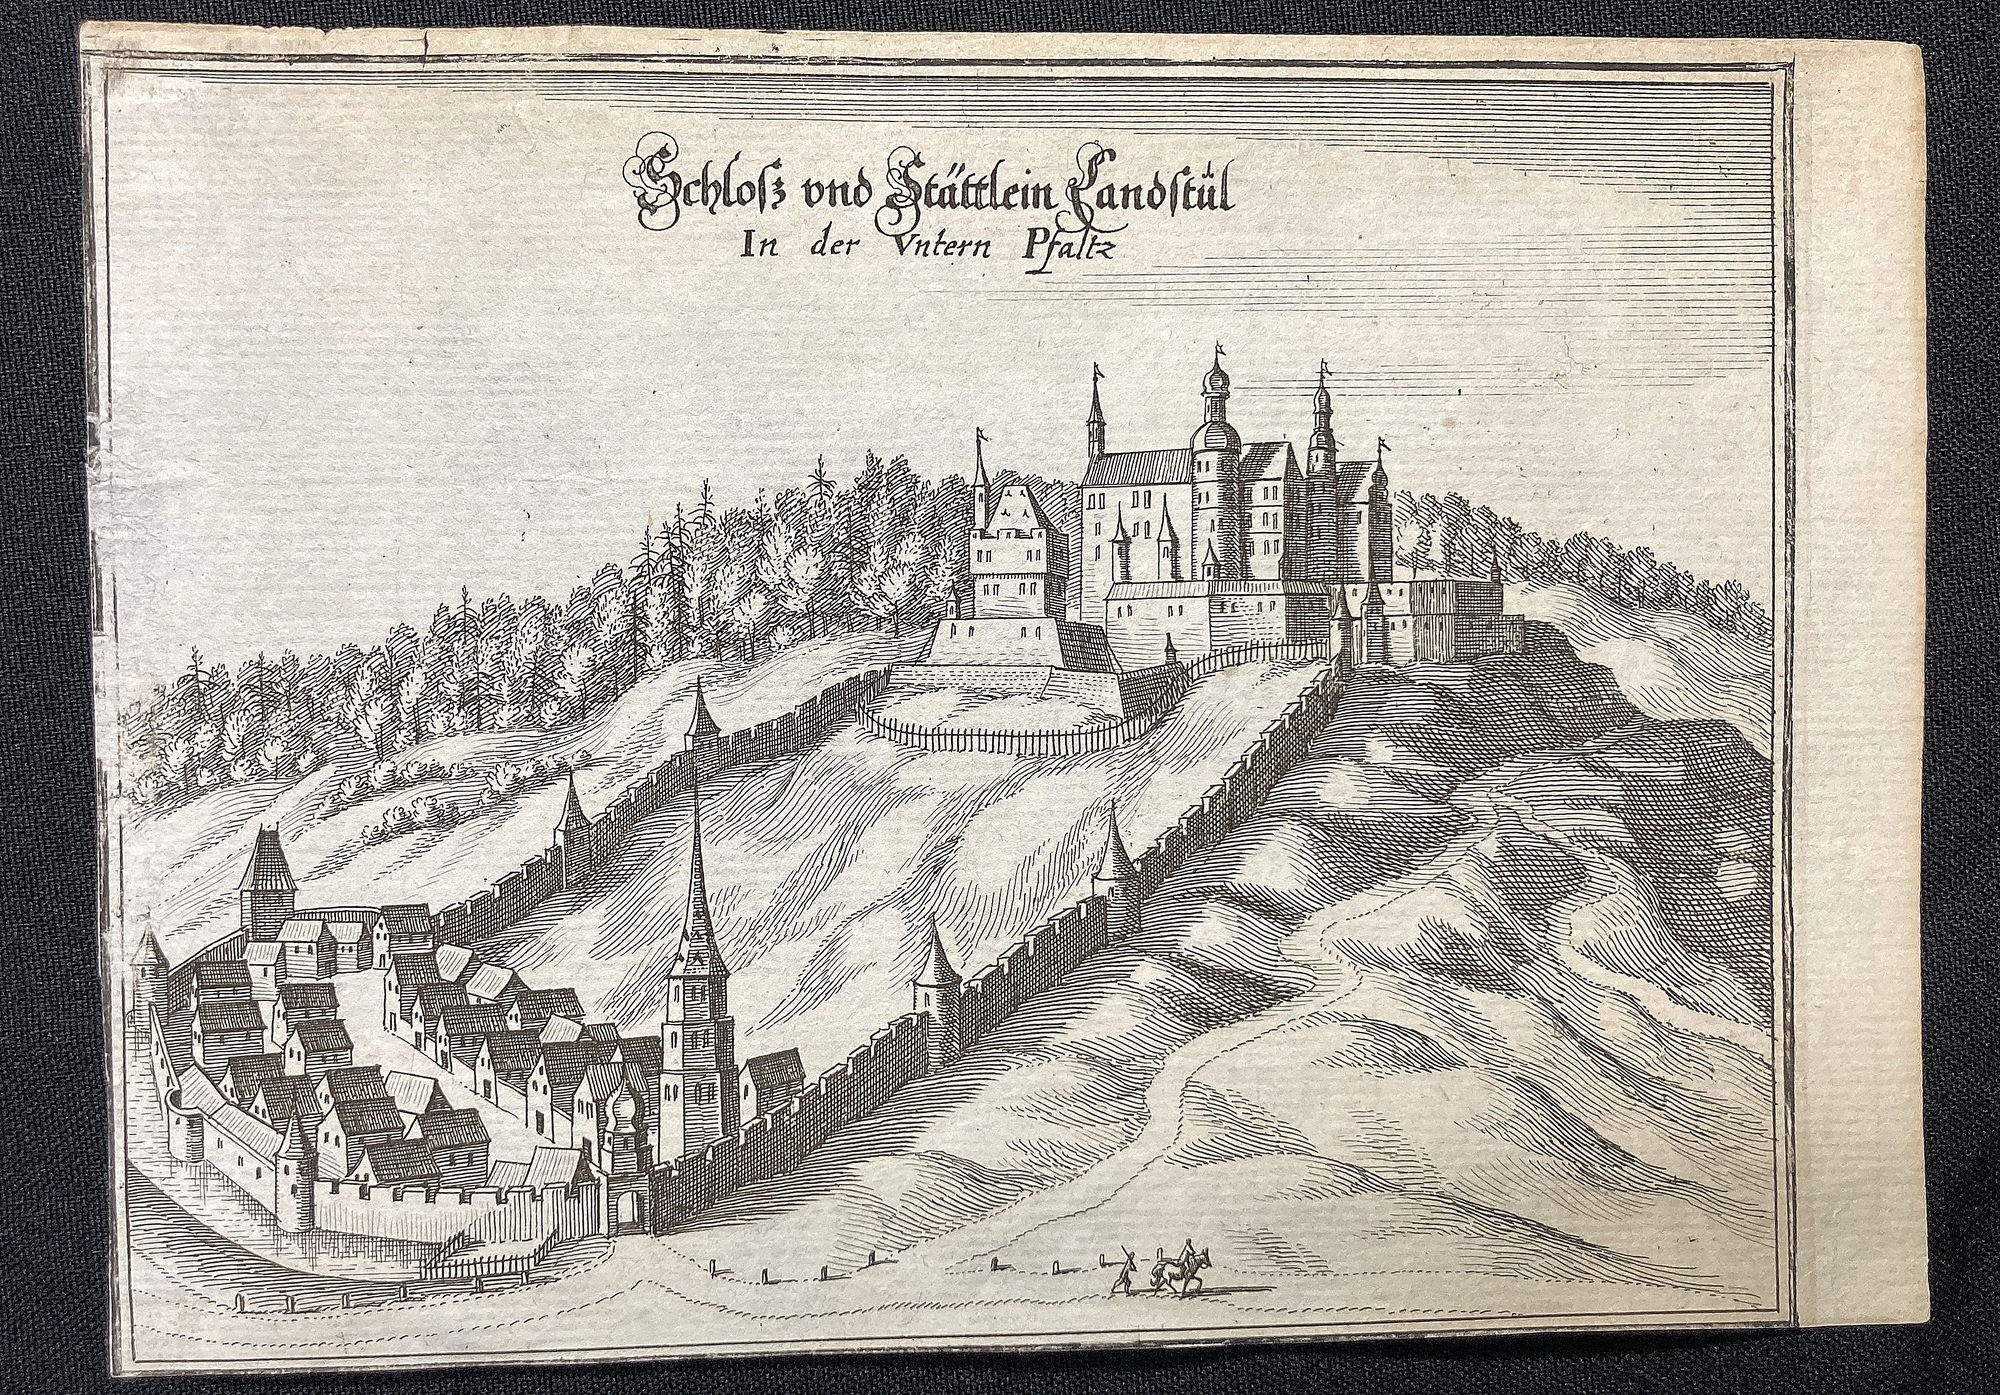 Schloſz vnd Stättlein Landſtůl
In der Vntern Pfaltz